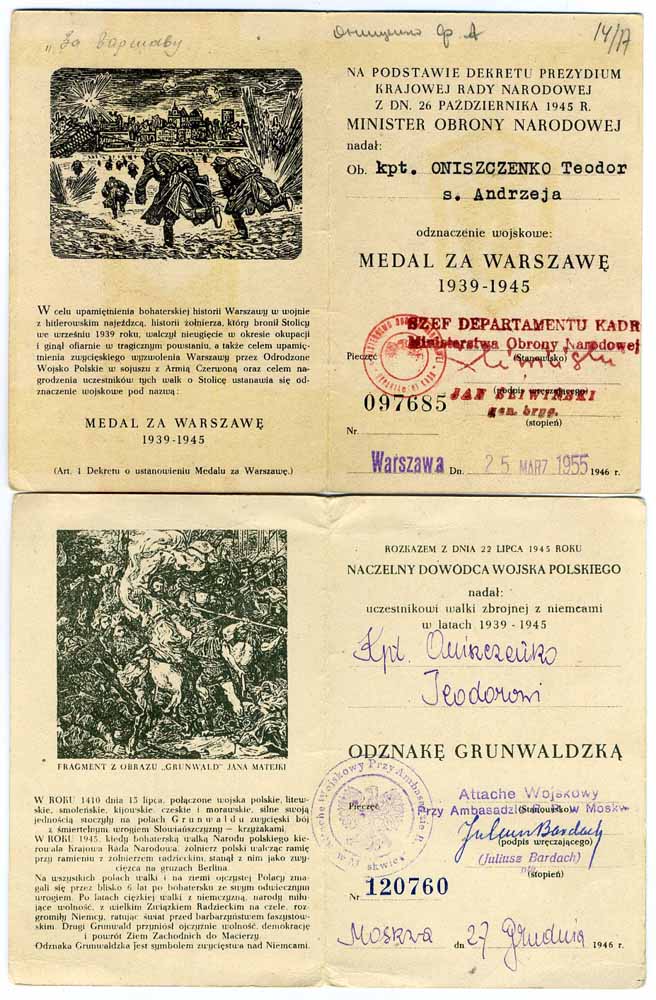 „За Варшаву
Онищенко ф. А
14/17
NA PODSTAWIE DEKRETU PREZYDIUM
KRAJOWEJ RADY NARODOWEJ
Z DN. 26 PAŹDZIERNIKA 1945 R.
MINISTER OBRONY NARODOWEJ
nadał:
Ob. kpt. ONISZCZENKO Teodor
s. Andrzeja
odznaczenie wojskowe:
MEDAL ZA WARSZAWĘ
1939-1945
SZEF DEPARTAMENTU KADR
Ministerstwa Obrony Narodowej
Pieczęć
(Stanowisko)
(podpis wręczającego)
JAN ŚLIWIŃSKI
gen. bryg.
(stopień)
097685
Nr.
Warszawa Dn. 25 MARZ 1955 1946 r.
W celu upamiętnienia bohaterskiej historii Warszawy w wojnie
z hitlerowskim najeźdzcą, historii żołnierza, który bronił Stolicy
we wrześniu 1939 roku, walczył nieugięcie w okresie okupacji
i ginął ofiarnie w tragicznym powstaniu, a także celem upamięt-
nienia zwycięskiego wyzwolenia Warszawy przez Odrodzone
Wojsko Polskie w sojuszu z Armią Czerwoną oraz celem na-
grodzenia uczestników tych walk o Stolicę ustanawia się od-
znaczenie wojskowe pod nazwą:
MEDAL ZA WARSZAWĘ
1939-1945
(Art. 1 Dekretu o ustanowieniu Medalu za Warszawę.)
FRAGMENT Z OBRAZU „GRUNWALD" JANA MATEJKI
W ROKU 1410 dnia 15 lipca, połączone wojska polskie, litew-
skie, smoleńskie, kijowskie, czeskie i morawskie, silne swoją
jednością stoczyły na polach Grunwaldu zwycięski bój
z śmiertelnym wrogiem Słowiańszczyzny — krzyżakami.
W ROKU 1945, kiedy bohaterską walką Narodu polskiego kie-
rowała Krajowa Rada Narodowa, żołnierz polski walcząc ramię
przy ramieniu z żołnierzem radzieckim, stanął z nim jako zwy-
cięzca na gruzach Berlina.
Na wszystkich polach walki i na ziemi ojczystej Polacy zma-
gali się przez blisko 6 lat po bohatersku ze swym odwiecznym
wrogiem. Po latach ciężkiej walki z niemczyzną, narody miłu-
jące wolność, z wielkim Związkiem Radzieckim na czele, roz-
gromiły Niemcy, ratując świat przed barbarzyństwem faszystow-
skim. Drugi Grunwald przyniósł ojczyźnie wolność, demokrację
i powrót Ziem Zachodnich do Macierzy.
Odznaka Grunwaldzka jest symbolem zwycięstwa nad Niemcami.
ROZKAZEM Z DNIA 22 LIPCA 1945 ROKU
NACZELNY DOWÓDCA WOJSKA POLSKIEGO
nadał:
uczestnikowi walki zbrojnej z niemcami
w latach 1939 - 1945
Kpt. Oniszczeńko
Teodorowi
ODZNAKĘ GRUNWALDZKĄ
Attache Wojskowy
Pieczęć
(Stanowisko)
Przy Ambasadzie R. P. w Moskw
Julian Bardach
(podpis wręczającego)
(Juliusz Bardach)
(stopień)
Nr 120760
Moskwa dn 27 Grudnia 1946 r.